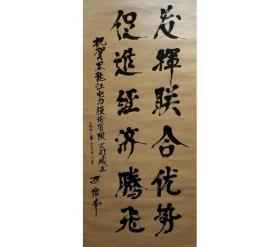 发挥联合优势
促进经济腾飞
祝贺黑龙江电力股份有限公司成立